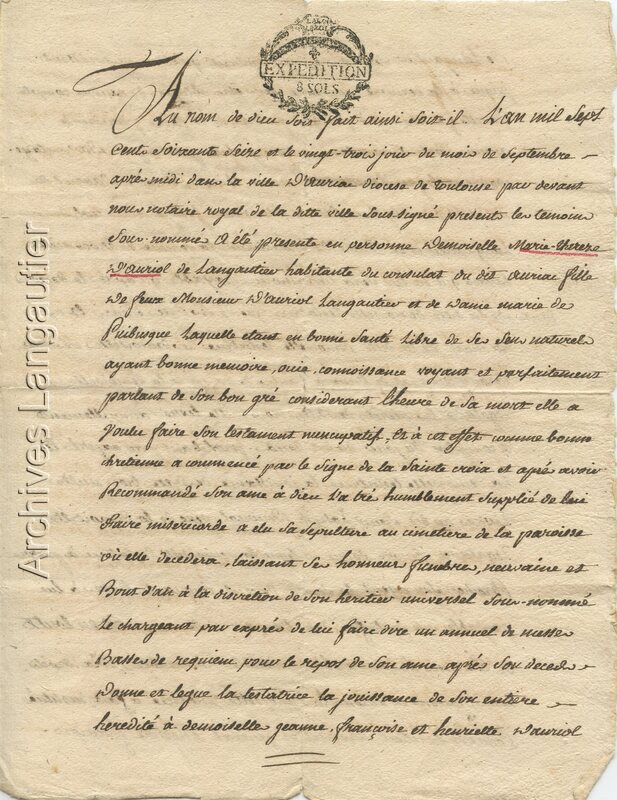 EXPEDITION
8 SOLS
Au nom de dieu soit fait ainsi soit-il. L'an mil sept
Cent soixante seize et le vingt-trois jour du mois de septembre
apres midi dans la ville D'auriac diocese de toulouse par devant
nous notaire royal de la ditte ville soussigné present les temoins
sous-nommés a été presente en personne Demoiselle Marie-thereze
D'auriol de Langautier habitante du consulat du dit auriac fille
de feux Monsieur D'auriol Langautier et de dame marie de
Puibusque Laquelle etant en bonne santé Libre de ses sens naturels
ayant bonne memoire, ouie, connoissance voyant et parfaitement
parlant de son bon gré considerant l'heure de sa mort elle a
voulu faire son testament nuncupatif, Et à cet effet comme bonne
chretienne a commencé par le signe de la sainte croix et après avoir
Recommandé son ame à dieu L'a tré humblement supplié de lui
faire misericorde a elu sa sepulture au cimetiere de la paroisse
où elle decedera, laissant ses honneurs funebres, neuvaine et
Bout d'an à la discretion de son heritier universel sous-nommé
Le chargeant par exprès de lui faire dire un annuel de messes
Basses de requiem pour le repos de son ame après son deces
Donne et legue la testatrice la jouissance de son entiere
heredité à demoiselles jeanne, françoise et henriette D'auriol
Archives Langautier